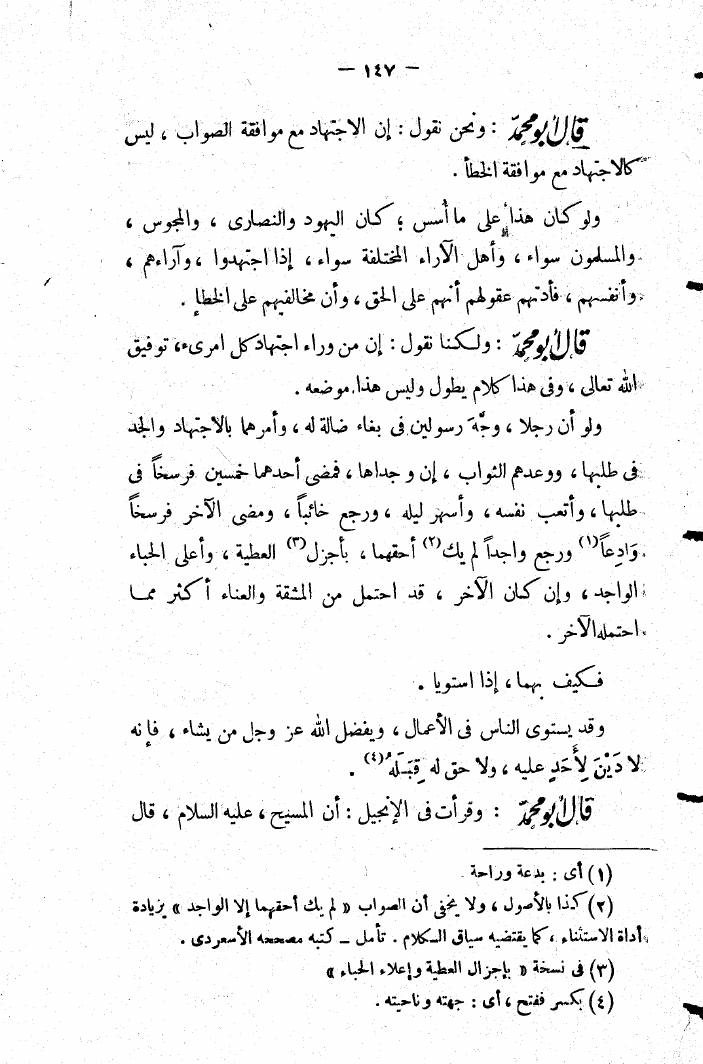 — ١٤٧ —
قال أبو محمد : ونحن نقول : إن الاجتهاد مع موافقة الصواب ، ليس
كالاجتهاد مع موافقة الخطأ .
ولو كان هذا على ما أسس ؛ كان اليهود والنصارى ، والمجوس ،
والمسلمون سواء ، وأهل الآراء المختلفة سواء ، إذا اجتهدوا ، وآراءهم ،
وأنفسهم ، فأدتهم عقولهم أنهم على الحق ، وأن مخالفيهم على الخطإ .
قال أبو محمد : ولكنا نقول : إن من وراء اجتهاد كل امرىء ، توفيق
الله تعالى ، وفى هذا كلام يطول وليس هذا موضعه .
ولو أن رجلا ، وجَّهَ رسولين فى بغاء ضالة له ، وأمرهما بالاجتهاد والجد
فى طلبها ، ووعدهم الثواب ، إن وجداها ، فمضى أحدهما خمسين فرسخاً فى
طلبها ، وأتعب نفسه ، وأسهر ليله ، ورجع خائباً ، ومضى الآخر فرسخاً
وَادِعاً (١) ورجع واجداً لم يك (٢) أحقهما ، بأجزل (٣) العطية ، وأعلى الحباء
الواجد ، وإن كان الآخر ، قد احتمل من المشقة والعناء أكثر مما
احتمله الآخر .
فكيف بهما ، إذا استويا .
وقد يستوى الناس فى الأعمال ، ويفضل الله عز وجل من يشاء ، فإنه
لا دَيْنَ لِأَحَدٍ عليه ، ولا حق له قِبَلَهُ (٤) .
قال أبو محمد : وقرأت فى الإنجيل : أن المسيح ، عليه السلام ، قال
(١) أى : بدعة وراحة
(٢) كذا بالأصول ، ولا يخفى أن الصواب « لم يك أحقهما إلا الواجد » بزيادة
أداة الاستثناء ، كما يقتضيه سياق الكلام . تأمل ــ كتبه مصححه الأسعردى .
(٣) فى نسخة « بإجزال العطية وإعلاء الحباء »
(٤) بكسر ففتح ، أى : جهته وناحيته .